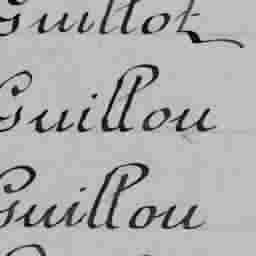 Guillot
Guillou
Guillou